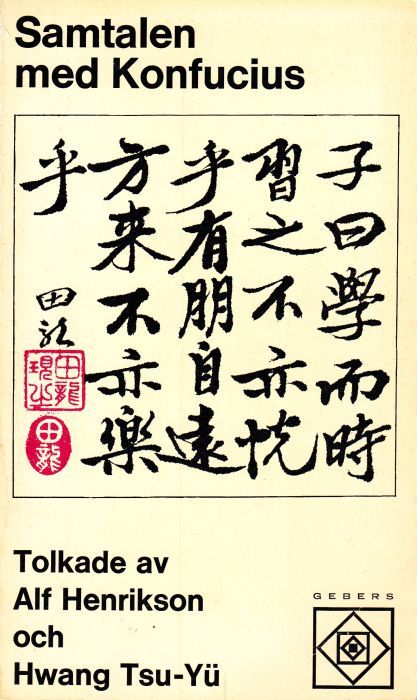 Samtalen
med Konfucius
子曰學而時
習之不亦悦
乎有朋自遠
方来不亦樂
乎
田龍
田龍
Tolkade av
Alf Henrikson
och
Hwang Tsu-Yü
GEBERS